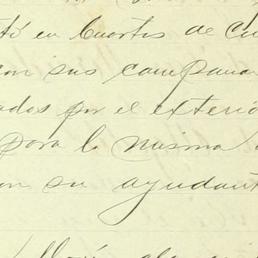 té en Cuartos de Cu
con sus campana
ados por el exterio
para la misma
on su ayudant